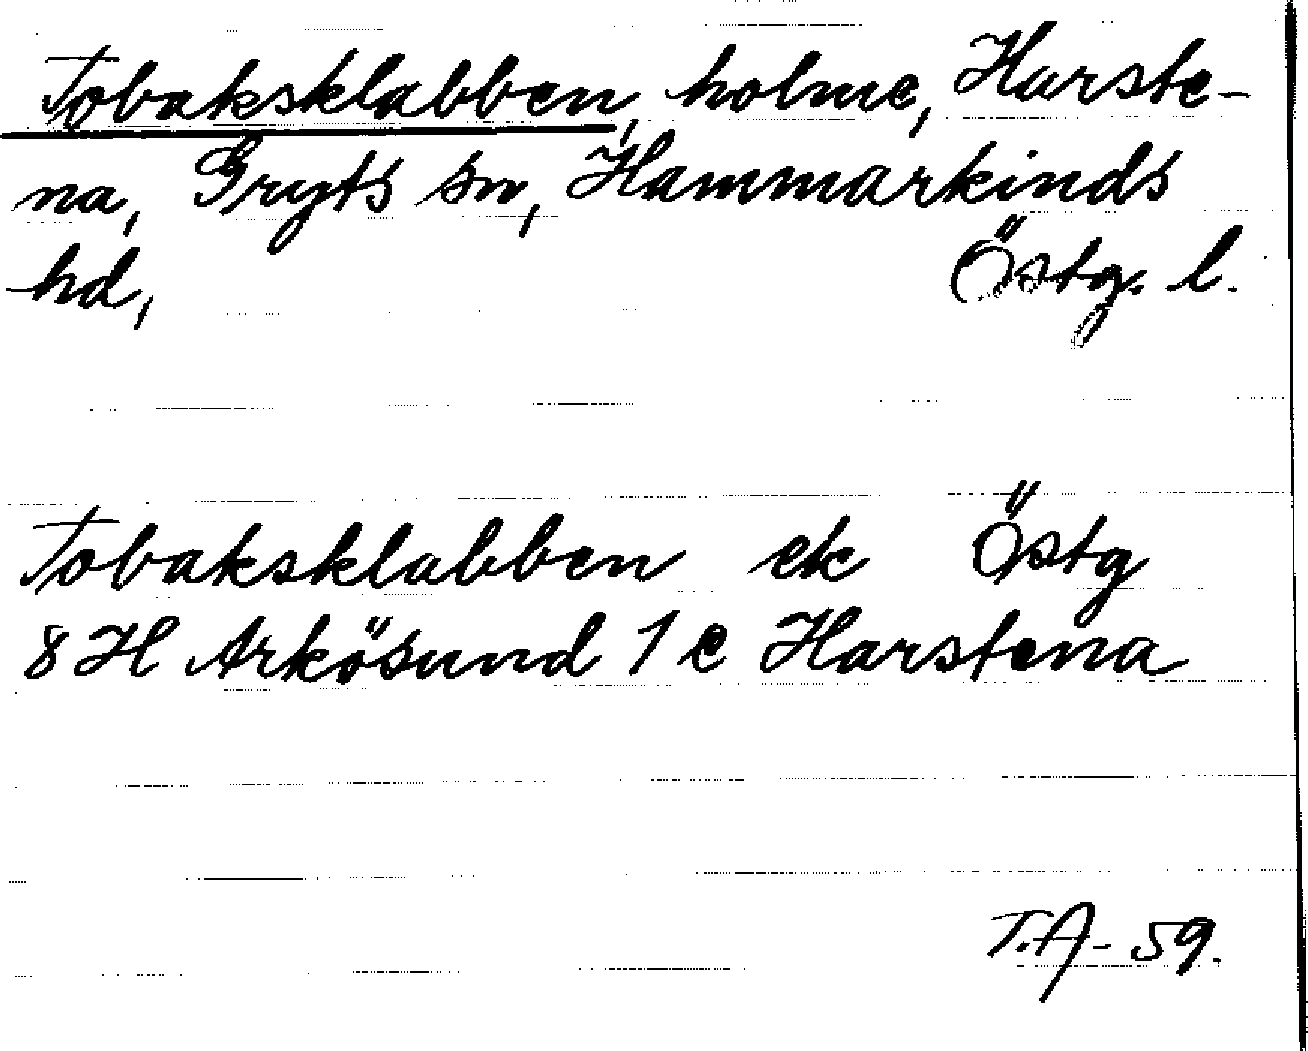 Tobaksklabben, holme, Harste-
na, Gryts sn, Hammarkinds
hd, Östg. l.
Tobaksklabben ek Östg
8 H Arkösund 1 e Harstena
T.A- 59.